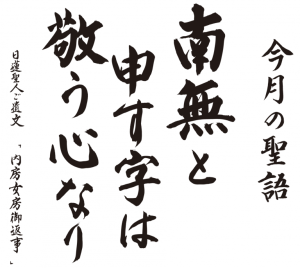 今月の聖語
南無と
申す字は
敬う心なり
日蓮聖人ご遺文 「内房女房御返事」